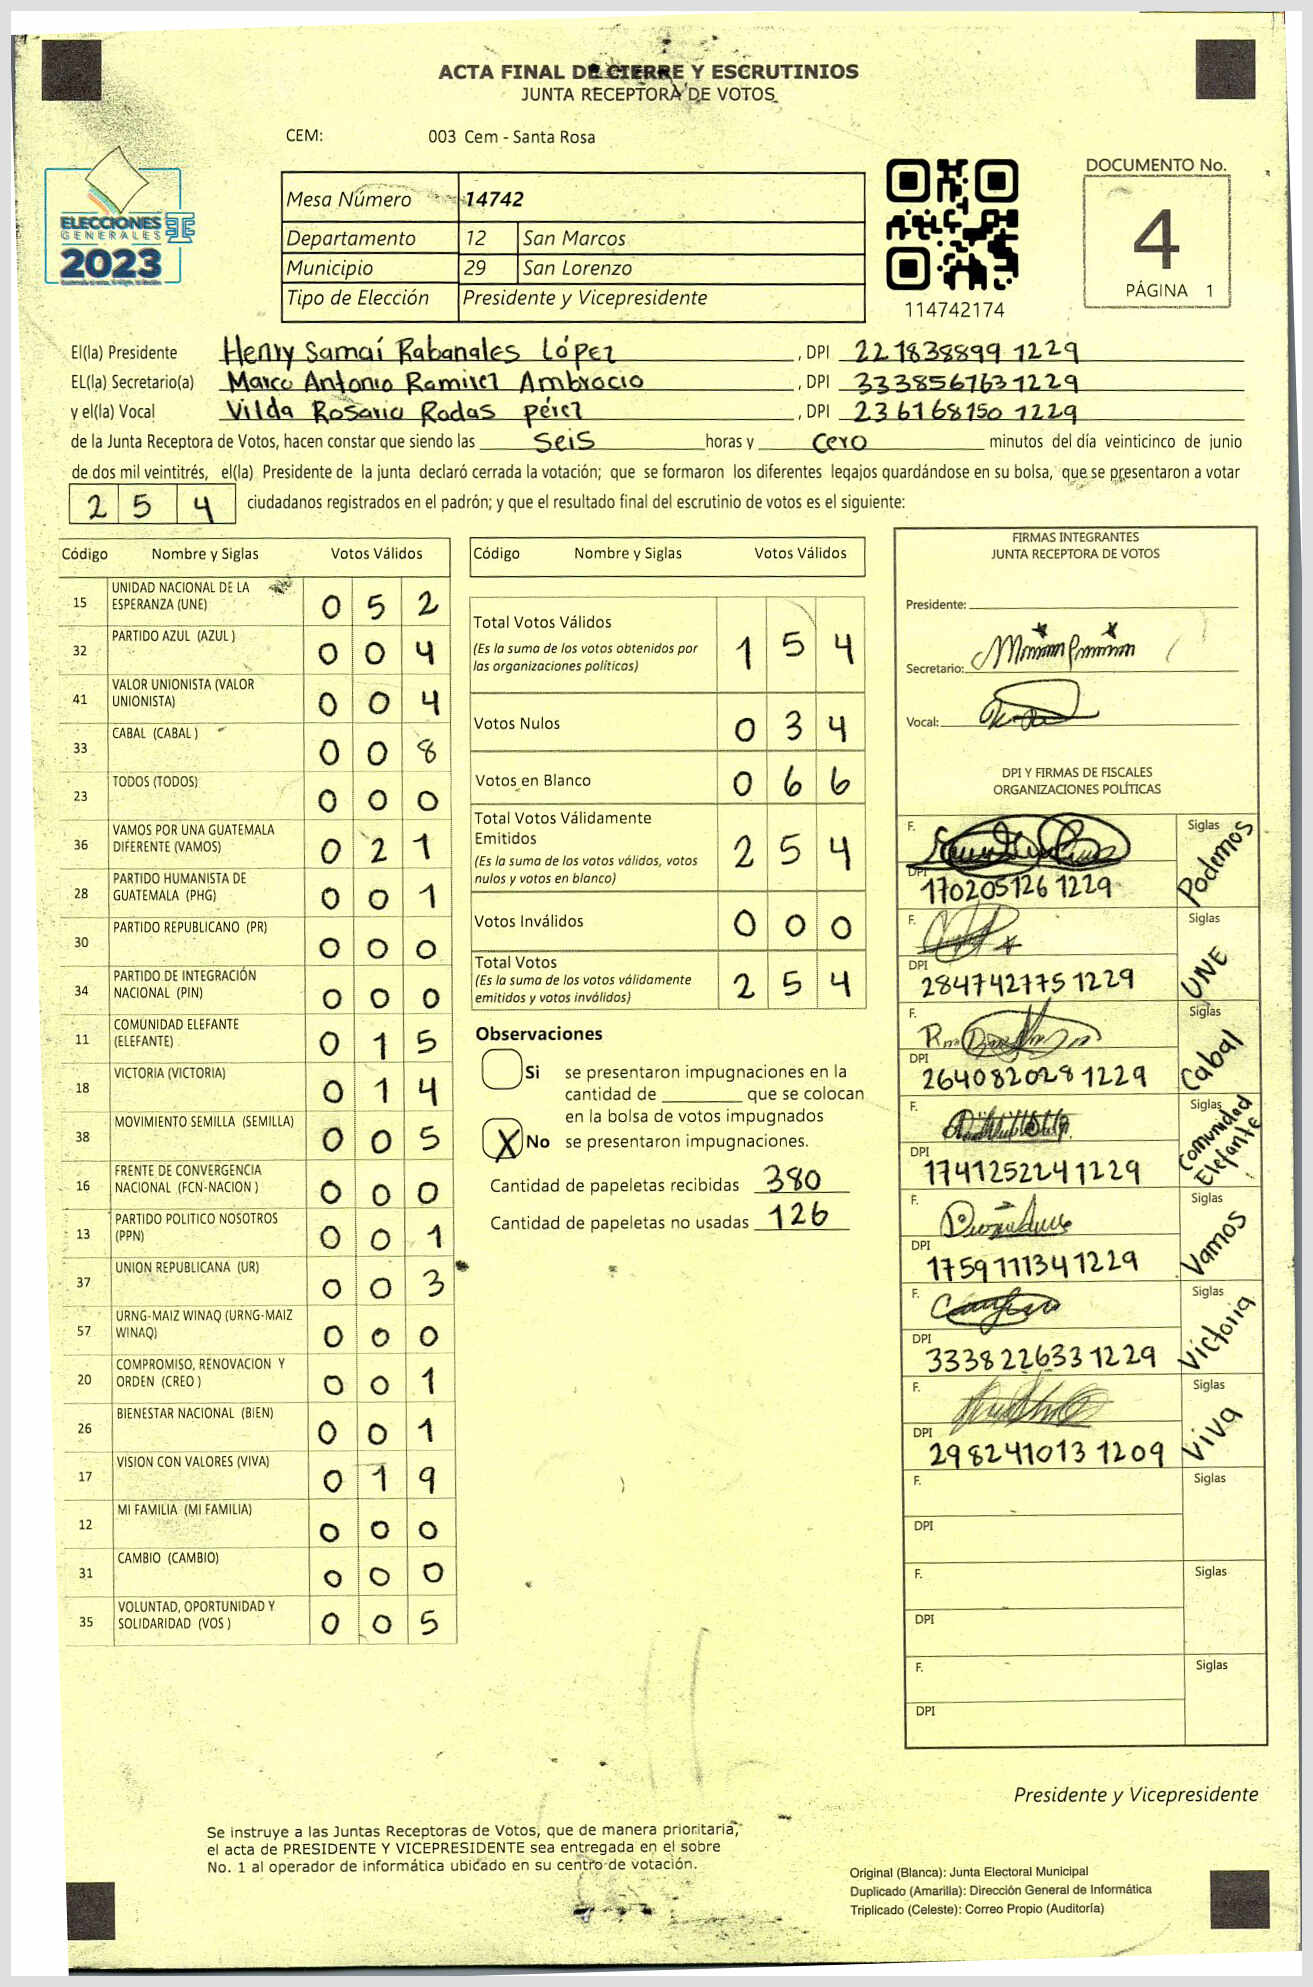 ACTA FINAL DE CIERRE Y ESCRUTINIOS
JUNTA RECEPTORA DE VOTOS
CEM: 003 Cem - Santa Rosa
ELECCIONES
GENERALES
2023
Mesa Número 14742
Departamento 12 San Marcos
Municipio 29 San Lorenzo
Tipo de Elección Presidente y Vicepresidente
114742174
DOCUMENTO No.
4
PÁGINA 1
El(la) Presidente Henry Samaí Rabanales López, DPI 221838899 1229
EL(la) Secretario(a) Marco Antonio Ramirez Ambrocio, DPI 333856763 1229
y el(la) Vocal Vilda Rosario Rodas pérez, DPI 236168150 1229
de la Junta Receptora de Votos, hacen constar que siendo las seis horas y cero minutos del día veinticinco de junio
de dos mil veintitrés, el(la) Presidente de la junta declaró cerrada la votación; que se formaron los diferentes legajos guardándose en su bolsa, que se presentaron a votar
254 ciudadanos registrados en el padrón; y que el resultado final del escrutinio de votos es el siguiente:
Código Nombre y Siglas Votos Válidos
15 UNIDAD NACIONAL DE LA ESPERANZA (UNE) 0 5 2
32 PARTIDO AZUL (AZUL ) 0 0 4
41 VALOR UNIONISTA (VALOR UNIONISTA) 0 0 4
33 CABAL (CABAL ) 0 0 8
23 TODOS (TODOS) 0 0 0
36 VAMOS POR UNA GUATEMALA DIFERENTE (VAMOS) 0 2 1
28 PARTIDO HUMANISTA DE GUATEMALA (PHG) 0 0 1
30 PARTIDO REPUBLICANO (PR) 0 0 0
34 PARTIDO DE INTEGRACIÓN NACIONAL (PIN) 0 0 0
11 COMUNIDAD ELEFANTE (ELEFANTE) 0 1 5
18 VICTORIA (VICTORIA) 0 1 4
38 MOVIMIENTO SEMILLA (SEMILLA) 0 0 5
16 FRENTE DE CONVERGENCIA NACIONAL (FCN-NACION ) 0 0 0
13 PARTIDO POLITICO NOSOTROS (PPN) 0 0 1
37 UNION REPUBLICANA (UR) 0 0 3
57 URNG-MAIZ WINAQ (URNG-MAIZ WINAQ) 0 0 0
20 COMPROMISO, RENOVACION Y ORDEN (CREO ) 0 0 1
26 BIENESTAR NACIONAL (BIEN) 0 0 1
17 VISION CON VALORES (VIVA) 0 1 9
12 MI FAMILIA (MI FAMILIA) 0 0 0
31 CAMBIO (CAMBIO) 0 0 0
35 VOLUNTAD, OPORTUNIDAD Y SOLIDARIDAD (VOS ) 0 0 5
Código Nombre y Siglas Votos Válidos
Total Votos Válidos 1 5 4
(Es la suma de los votos obtenidos por
las organizaciones políticas)
Votos Nulos 0 3 4
Votos en Blanco 0 6 6
Total Votos Válidamente
Emitidos 2 5 4
(Es la suma de los votos válidos, votos
nulos y votos en blanco)
Votos Inválidos 0 0 0
Total Votos 2 5 4
(Es la suma de los votos válidamente
emitidos y votos inválidos)
Observaciones
Si se presentaron impugnaciones en la
cantidad de ________ que se colocan
en la bolsa de votos impugnados
X No se presentaron impugnaciones.
Cantidad de papeletas recibidas 380
Cantidad de papeletas no usadas 126
FIRMAS INTEGRANTES
JUNTA RECEPTORA DE VOTOS
Presidente:
Secretario:
Vocal:
DPI Y FIRMAS DE FISCALES
ORGANIZACIONES POLÍTICAS
F. Siglas Podemos
DPI 170205126 1229
F. Siglas UNE
DPI 284742775 1229
F. Siglas Cabal
DPI 264082028 1229
F. Siglas Comunidad Elefante
DPI 174125224 1229
F. Siglas Vamos
DPI 175911134 1229
F. Siglas Victoria
DPI 333822633 1229
F. Siglas Viva
DPI 298241013 1209
F. Siglas
DPI
F. Siglas
DPI
F. Siglas
DPI
Presidente y Vicepresidente
Se instruye a las Juntas Receptoras de Votos, que de manera prioritaria,
el acta de PRESIDENTE Y VICEPRESIDENTE sea entregada en el sobre
No. 1 al operador de informática ubicado en su centro de votación.
Original (Blanca): Junta Electoral Municipal
Duplicado (Amarilla): Dirección General de Informática
Triplicado (Celeste): Correo Propio (Auditoría)